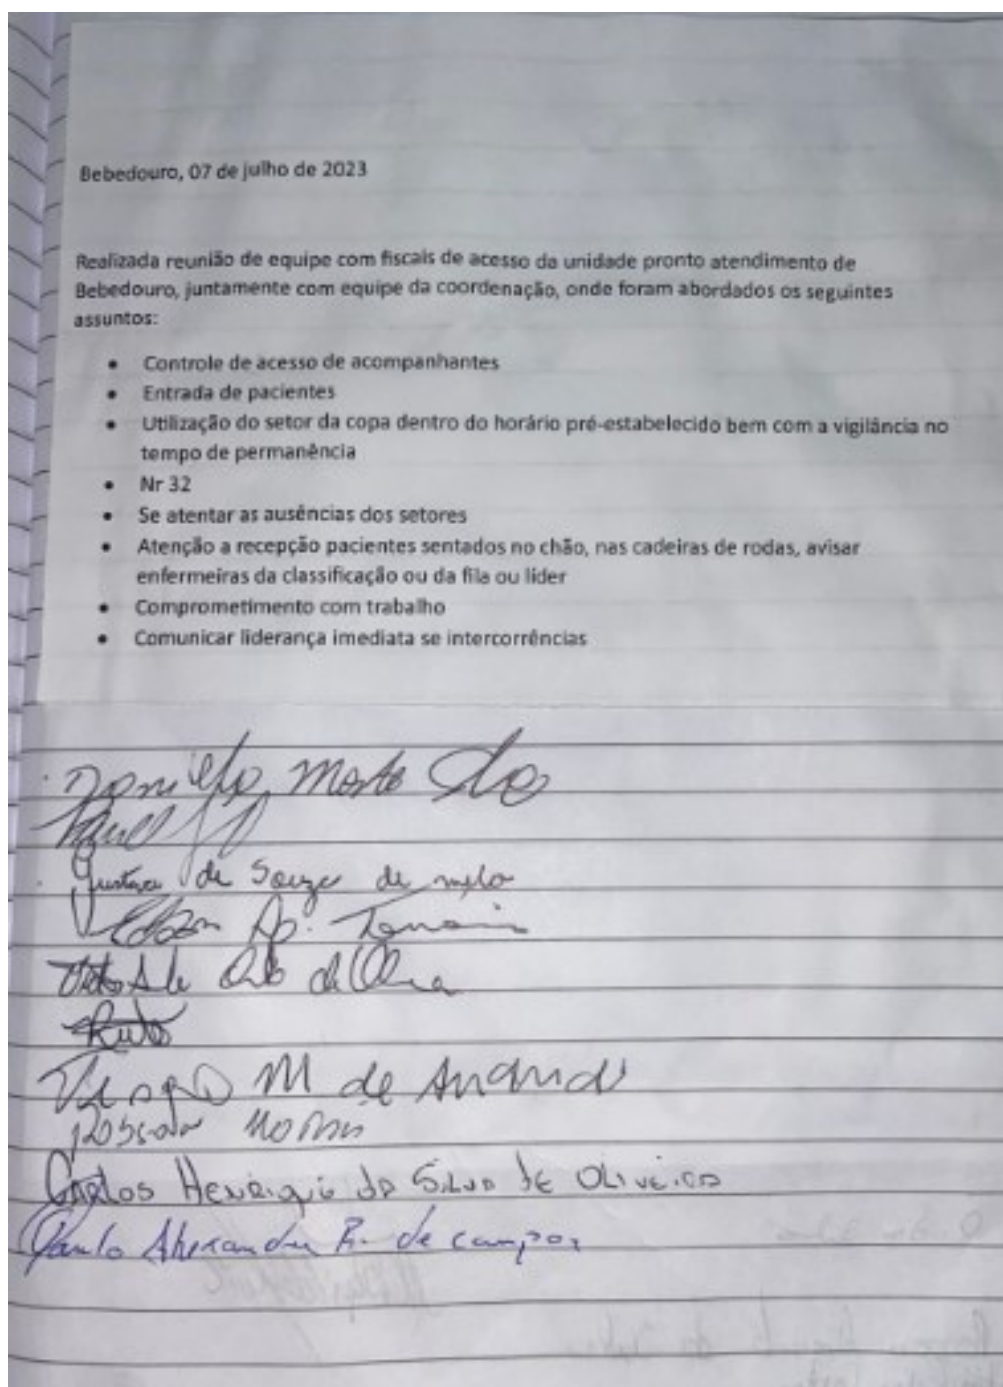 Bebedouro, 07 de julho de 2023
Realizada reunião de equipe com fiscais de acesso da unidade pronto atendimento de
Bebedouro, juntamente com equipe da coordenação, onde foram abordados os seguintes
assuntos:
• Controle de acesso de acompanhantes
• Entrada de pacientes
• Utilização do setor da copa dentro do horário pré-estabelecido bem com a vigilância no
tempo de permanência
• Nr 32
• Se atentar as ausências dos setores
• Atenção a recepção pacientes sentados no chão, nas cadeiras de rodas, avisar
enfermeiras da classificação ou da fila ou líder
• Comprometimento com trabalho
• Comunicar liderança imediata se intercorrências
Danilo
Gustavo de Souza de melo
Ap.
de
M de
Carlos Henrique da Silva de Oliveira
Paulo Alexandre R. de campos